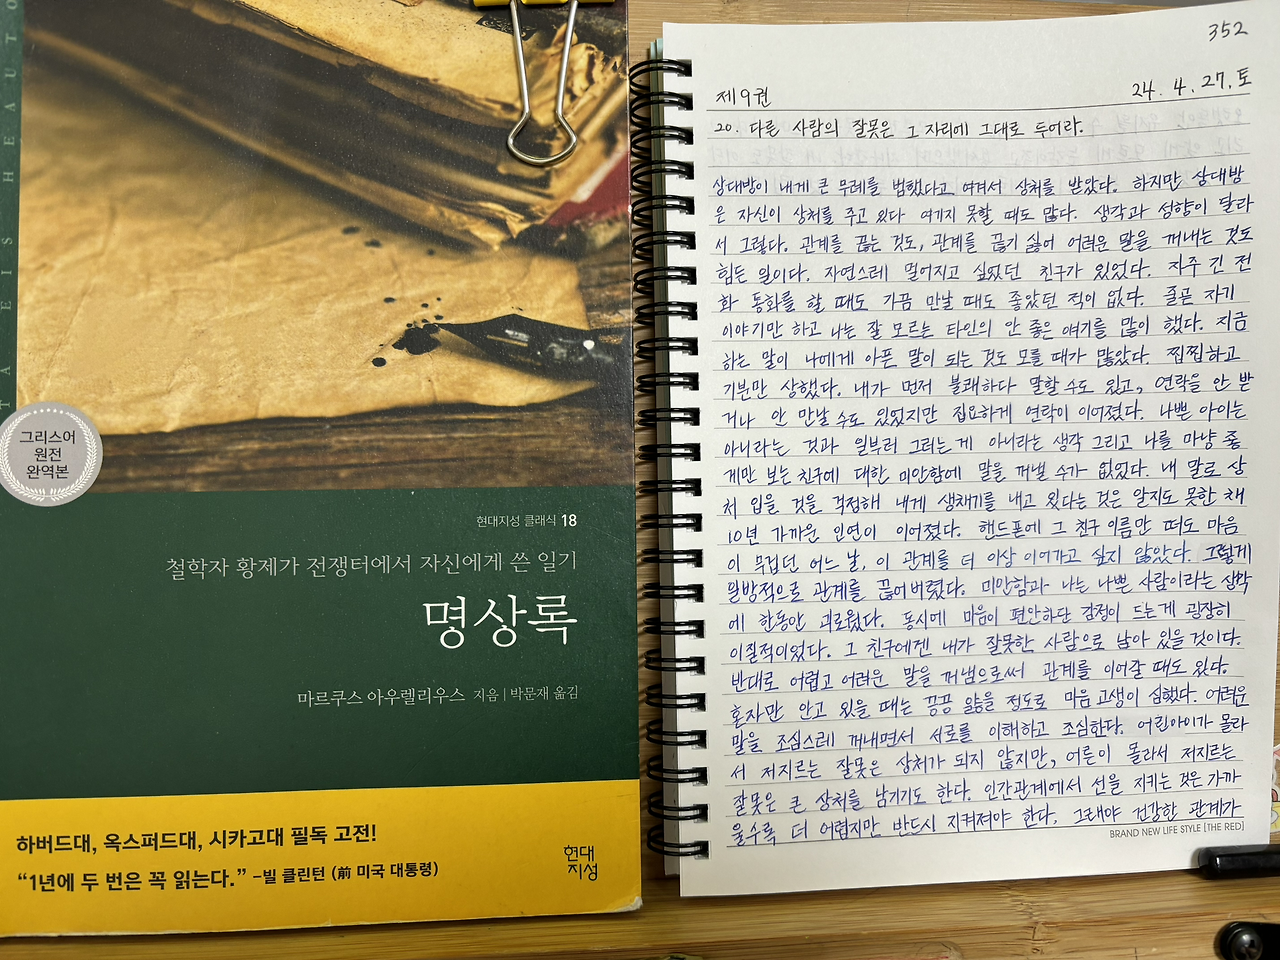 TA EIS HEAUTO
그리스어
원전
완역본
현대지성 클래식 18
철학자 황제가 전쟁터에서 자신에게 쓴 일기
명상록
마르쿠스 아우렐리우스 지음 | 박문재 옮김
하버드대, 옥스퍼드대, 시카고대 필독 고전!
“1년에 두 번은 꼭 읽는다.” –빌 클린턴 (前 미국 대통령)
현대
지성
352
제9권
24. 4. 27. 토
20. 다른 사람의 잘못은 그 자리에 그대로 두어라.
상대방이 내게 큰 무례를 범했다고 여겨서 상처를 받았다. 하지만 상대방
은 자신이 상처를 주고 있다 여기지 못할 때도 많다. 생각과 성향이 달라
서 그렇다. 관계를 끊는 것도, 관계를 끊기 싫어 어려운 말을 꺼내는 것도
힘든 일이다. 자연스레 멀어지고 싶었던 친구가 있었다. 자주 긴 전
화 통화를 할 때도 가끔 만날 때도 좋았던 적이 없다. 줄곧 자기
이야기만 하고 나는 잘 모르는 타인의 안 좋은 얘기를 많이 했다. 지금
하는 말이 나에게 아픈 말이 되는 것도 모를 때가 많았다. 찝찝하고
기분만 상했다. 내가 먼저 불쾌하다 말할 수도 있고, 연락을 안 받
거나 안 만날 수도 있었지만 집요하게 연락이 이어졌다. 나쁜 아이는
아니라는 것과 일부러 그러는 게 아니라는 생각 그리고 나를 마냥 좋
게만 보는 친구에 대한 미안함에 말을 꺼낼 수가 없었다. 내 말로 상
처 입을 것을 걱정해 내게 생채기를 내고 있다는 것은 알지도 못한 채
10년 가까운 인연이 이어졌다. 핸드폰에 그 친구 이름만 떠도 마음
이 무겁던 어느 날, 이 관계를 더 이상 이어가고 싶지 않았다. 그렇게
일방적으로 관계를 끊어버렸다. 미안함과 나는 나쁜 사람이라는 생각
에 한동안 괴로웠다. 동시에 마음이 편안하단 감정이 드는 게 굉장히
이질적이었다. 그 친구에겐 내가 잘못한 사람으로 남아 있을 것이다.
반대로 어렵고 어려운 말을 꺼냄으로써 관계를 이어갈 때도 있다.
혼자만 안고 있을 때는 끙끙 앓을 정도로 마음 고생이 심했다. 어려운
말을 조심스레 꺼내면서 서로를 이해하고 조심한다. 어린아이가 몰라
서 저지르는 잘못은 상처가 되지 않지만, 어른이 몰라서 저지르는
잘못은 큰 상처를 남기기도 한다. 인간관계에서 선을 지키는 것은 가까
울수록 더 어렵지만 반드시 지켜져야 한다. 그래야 건강한 관계가
BRAND NEW LIFE STYLE [THE RED]